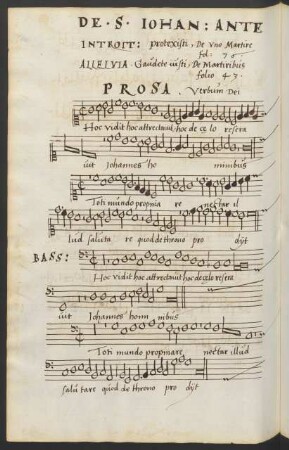 DE · S · IOHAN : ANTE
INTROIT : protexisti , De vno Martire
fol. 76
ALLELVIA Gaudete iusti , De Martiribus
folio 43 ·
PROSA . Verbum Dei
Hoc vidit hoc attrectauit hoc de cę lo resera
uit Johannes ho minibus
Toti mundo propinia re nectar il
lud saluta re quod de throno pro dijt
BASS :
Hoc vidit hoc attrectauit hoc de cęlo resera
uit Johannes homi nibus
Toti mundo propinare nectar illud
salu tare quod de throno pro dijt